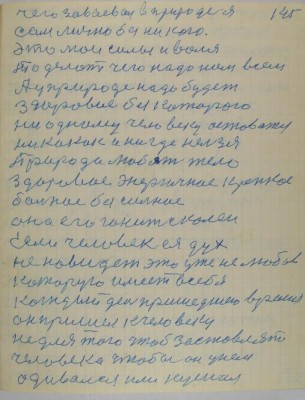 чего завоевал в природе я 145
сам лично без никого.
это мои силы и воля
то делают чего надо нам всем
А у природе надо будет
здоровое без которого
ни одному человеку оставаться
никак и нигде нельзя
природа любит тело
здоровое энергичное крепкое
больное бессилное
она его гонит с колеи
Если человек ея дух
не новидет это уже не любов
которую имеет всебя
каждый ден пришедшего времия
он пришел к человеку
не для того чтоб заставлят
человека чтобы он у нем
одивался или кушал